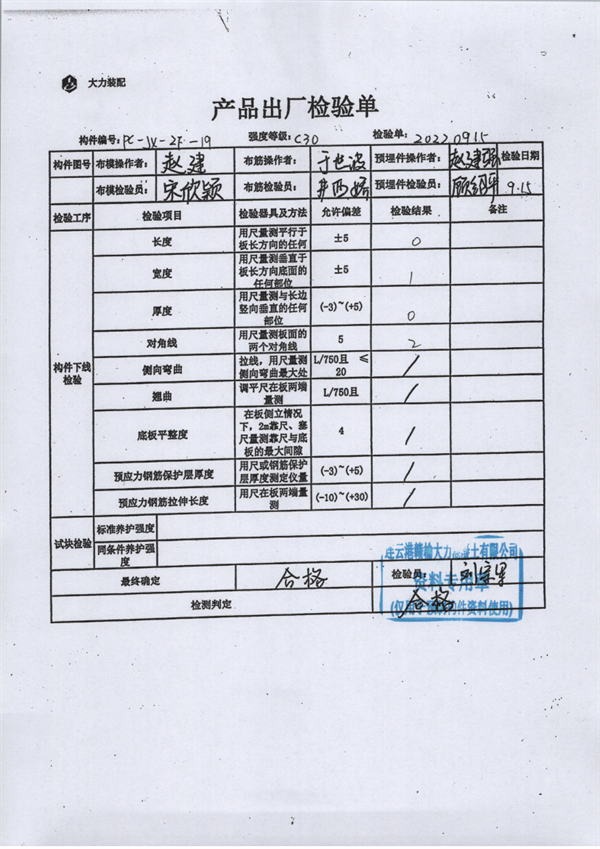 大力装配
产品出厂检验单
构件编号: PC-JX-2F-19 强度等级: C30 检验单: 20220915
构件图号 布模操作者: 赵建 布筋操作者: 于长波 预埋件操作者: 赵建强 检验日期
布模检验员: 宋欣颖 布筋检验员: 预埋件检验员: 9.15
检验工序 检验项目 检验器具及方法 允许偏差 检验结果 备注
构件下线检验
长度 用尺量测平行于板长方向的任何 ±5 0
宽度 用尺量测垂直于板长方向底面的任何部位 ±5 1
厚度 用尺量测与长边竖向垂直的任何部位 (-3)~(+5) 0
对角线 用尺量测板面的两个对角线 5 2
侧向弯曲 拉线,用尺量测侧向弯曲最大处 L/750且 ≤ 20 /
翘曲 调平尺在板两端量测 L/750且 /
底板平整度 在板侧立情况下,2m靠尺、塞尺量测靠尺与底板的最大间隙 4 /
预应力钢筋保护层厚度 用尺或钢筋保护层厚度测定仪量 (-3)~(+5) /
预应力钢筋拉伸长度 用尺在板两端量测 (-10)~(+30) /
试块检验 标准养护强度
同条件养护强度
最终确定 合格 检验员:
检测判定 合格
连云港赣榆大力 土有限公司
资料专用章
(仅用于预制构件资料使用)